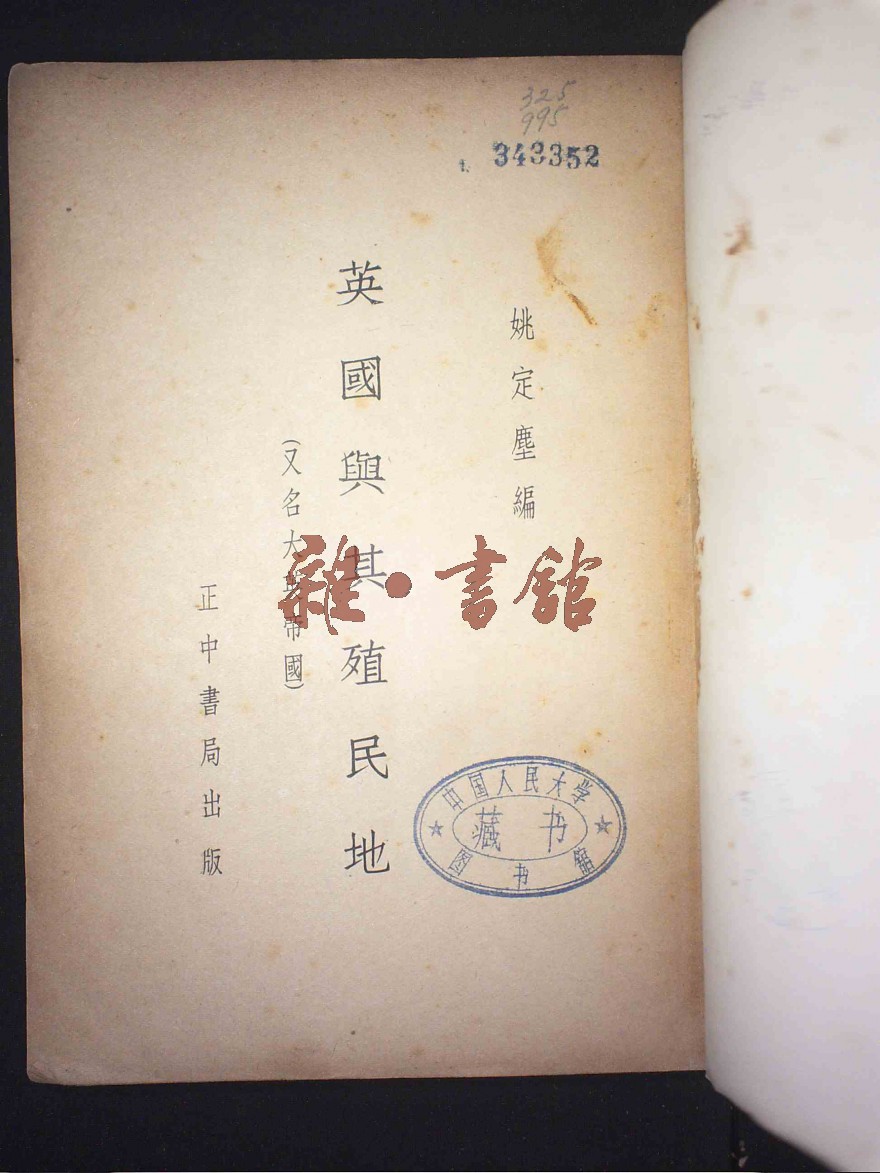 325
995
1. 343352
姚定塵編
英國與其殖民地
(又名大英帝國)
正中書局出版
雜·書館
中国人民大学
藏书
图书馆